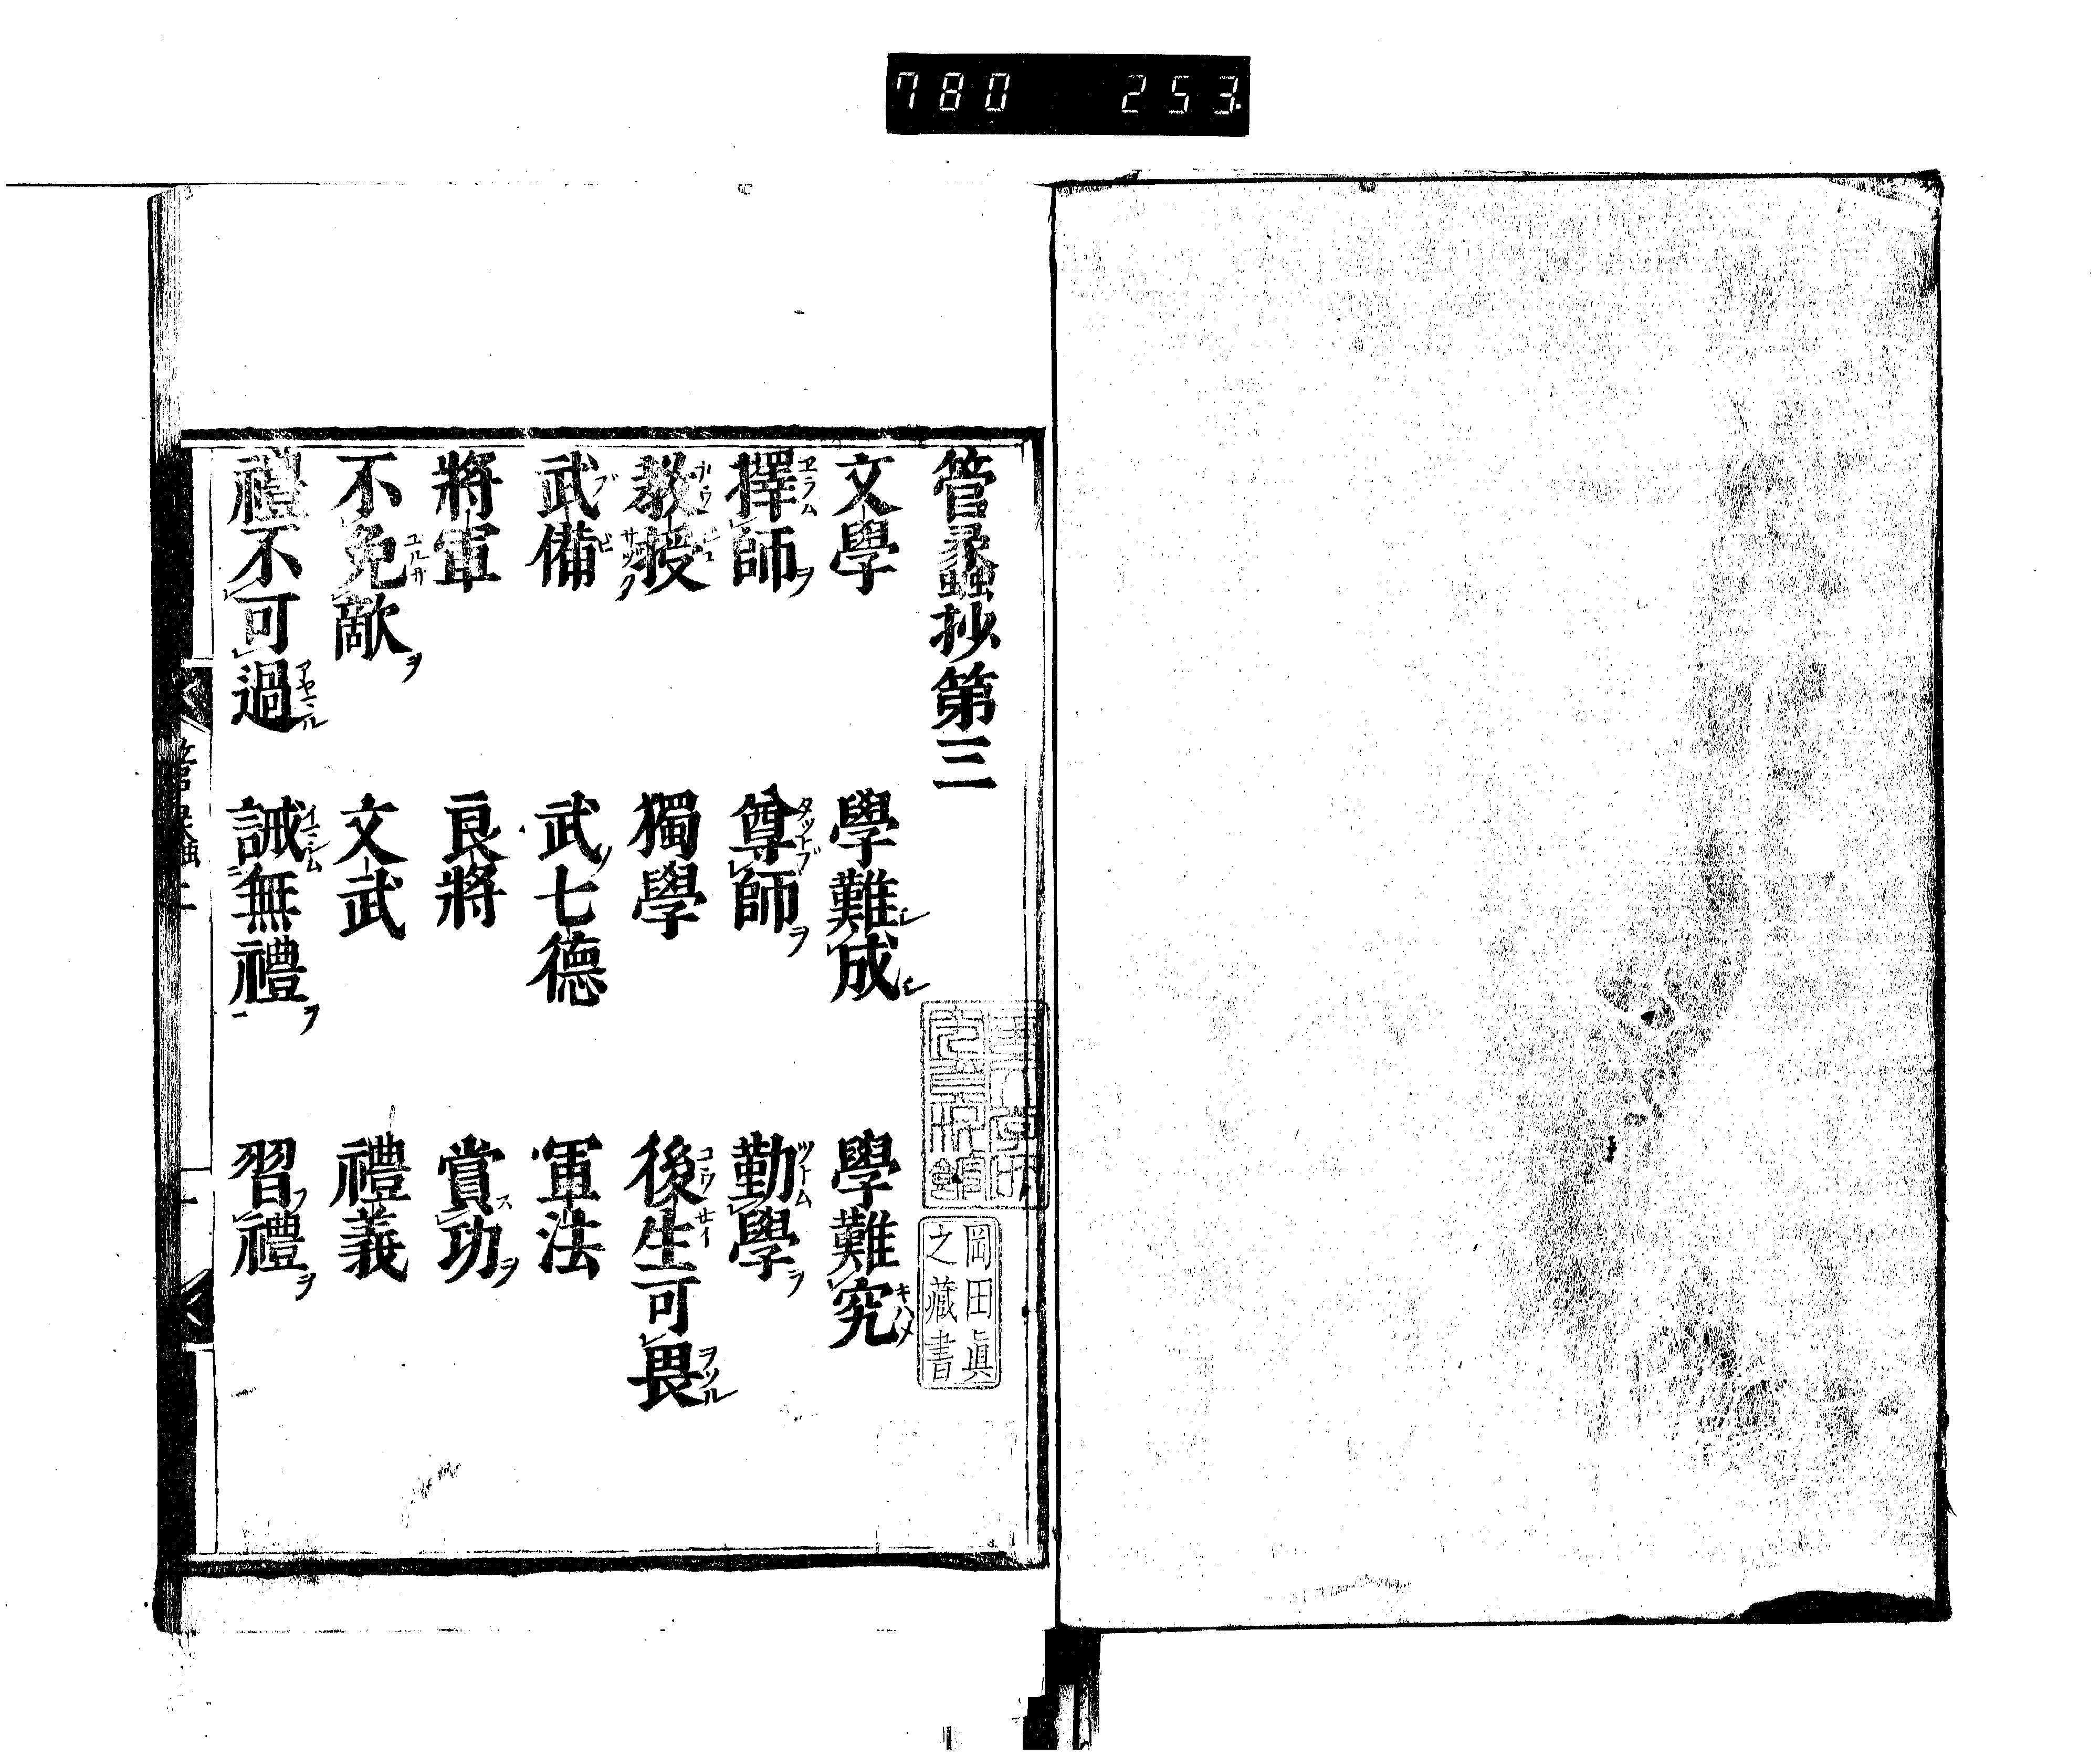 780 253
管蠡抄第三
文學 學難成 學難究
擇師 尊師 勤學
教授 獨學 後生可畏
武備 武七德 軍法
將軍 良將 賞功
不免敵 文武 禮義
禮不可過 誡無禮 習禮
岡田眞
之藏書